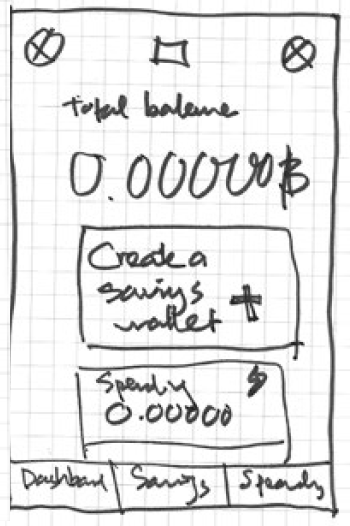 Total balance
0.00000₿
Create a
savings
wallet +
Spending
0.00000
Dashboard Savings Spending